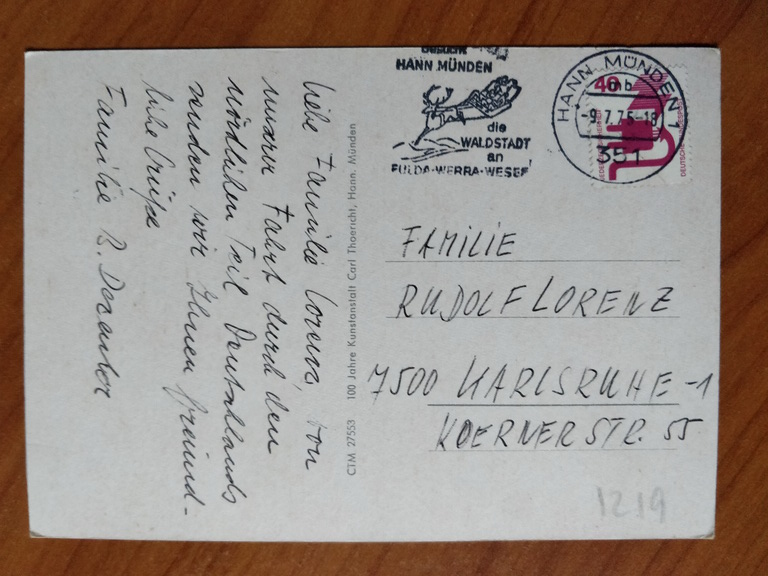 Liebe Familie Lorenz, von
unserer Fahrt durch den
nördlichen Teil Deutschlands
senden wir Ihnen freund-
liche Grüße
Familie B.
CTM 27553 100 Jahre Kunstanstalt Carl Thoericht, Hann. Münden
Besucht
HANN MÜNDEN
die
WALDSTADT
an
FULDA-WERRA-WESER
HANN. MÜNDEN 1
mb
-9.7.75-18
351
40
DEUTSCHE BUNDESPOST
FAMILIE
RUDOLF LORENZ
7500 KARLSRUHE-1
KOERNERSTR. 55
1219